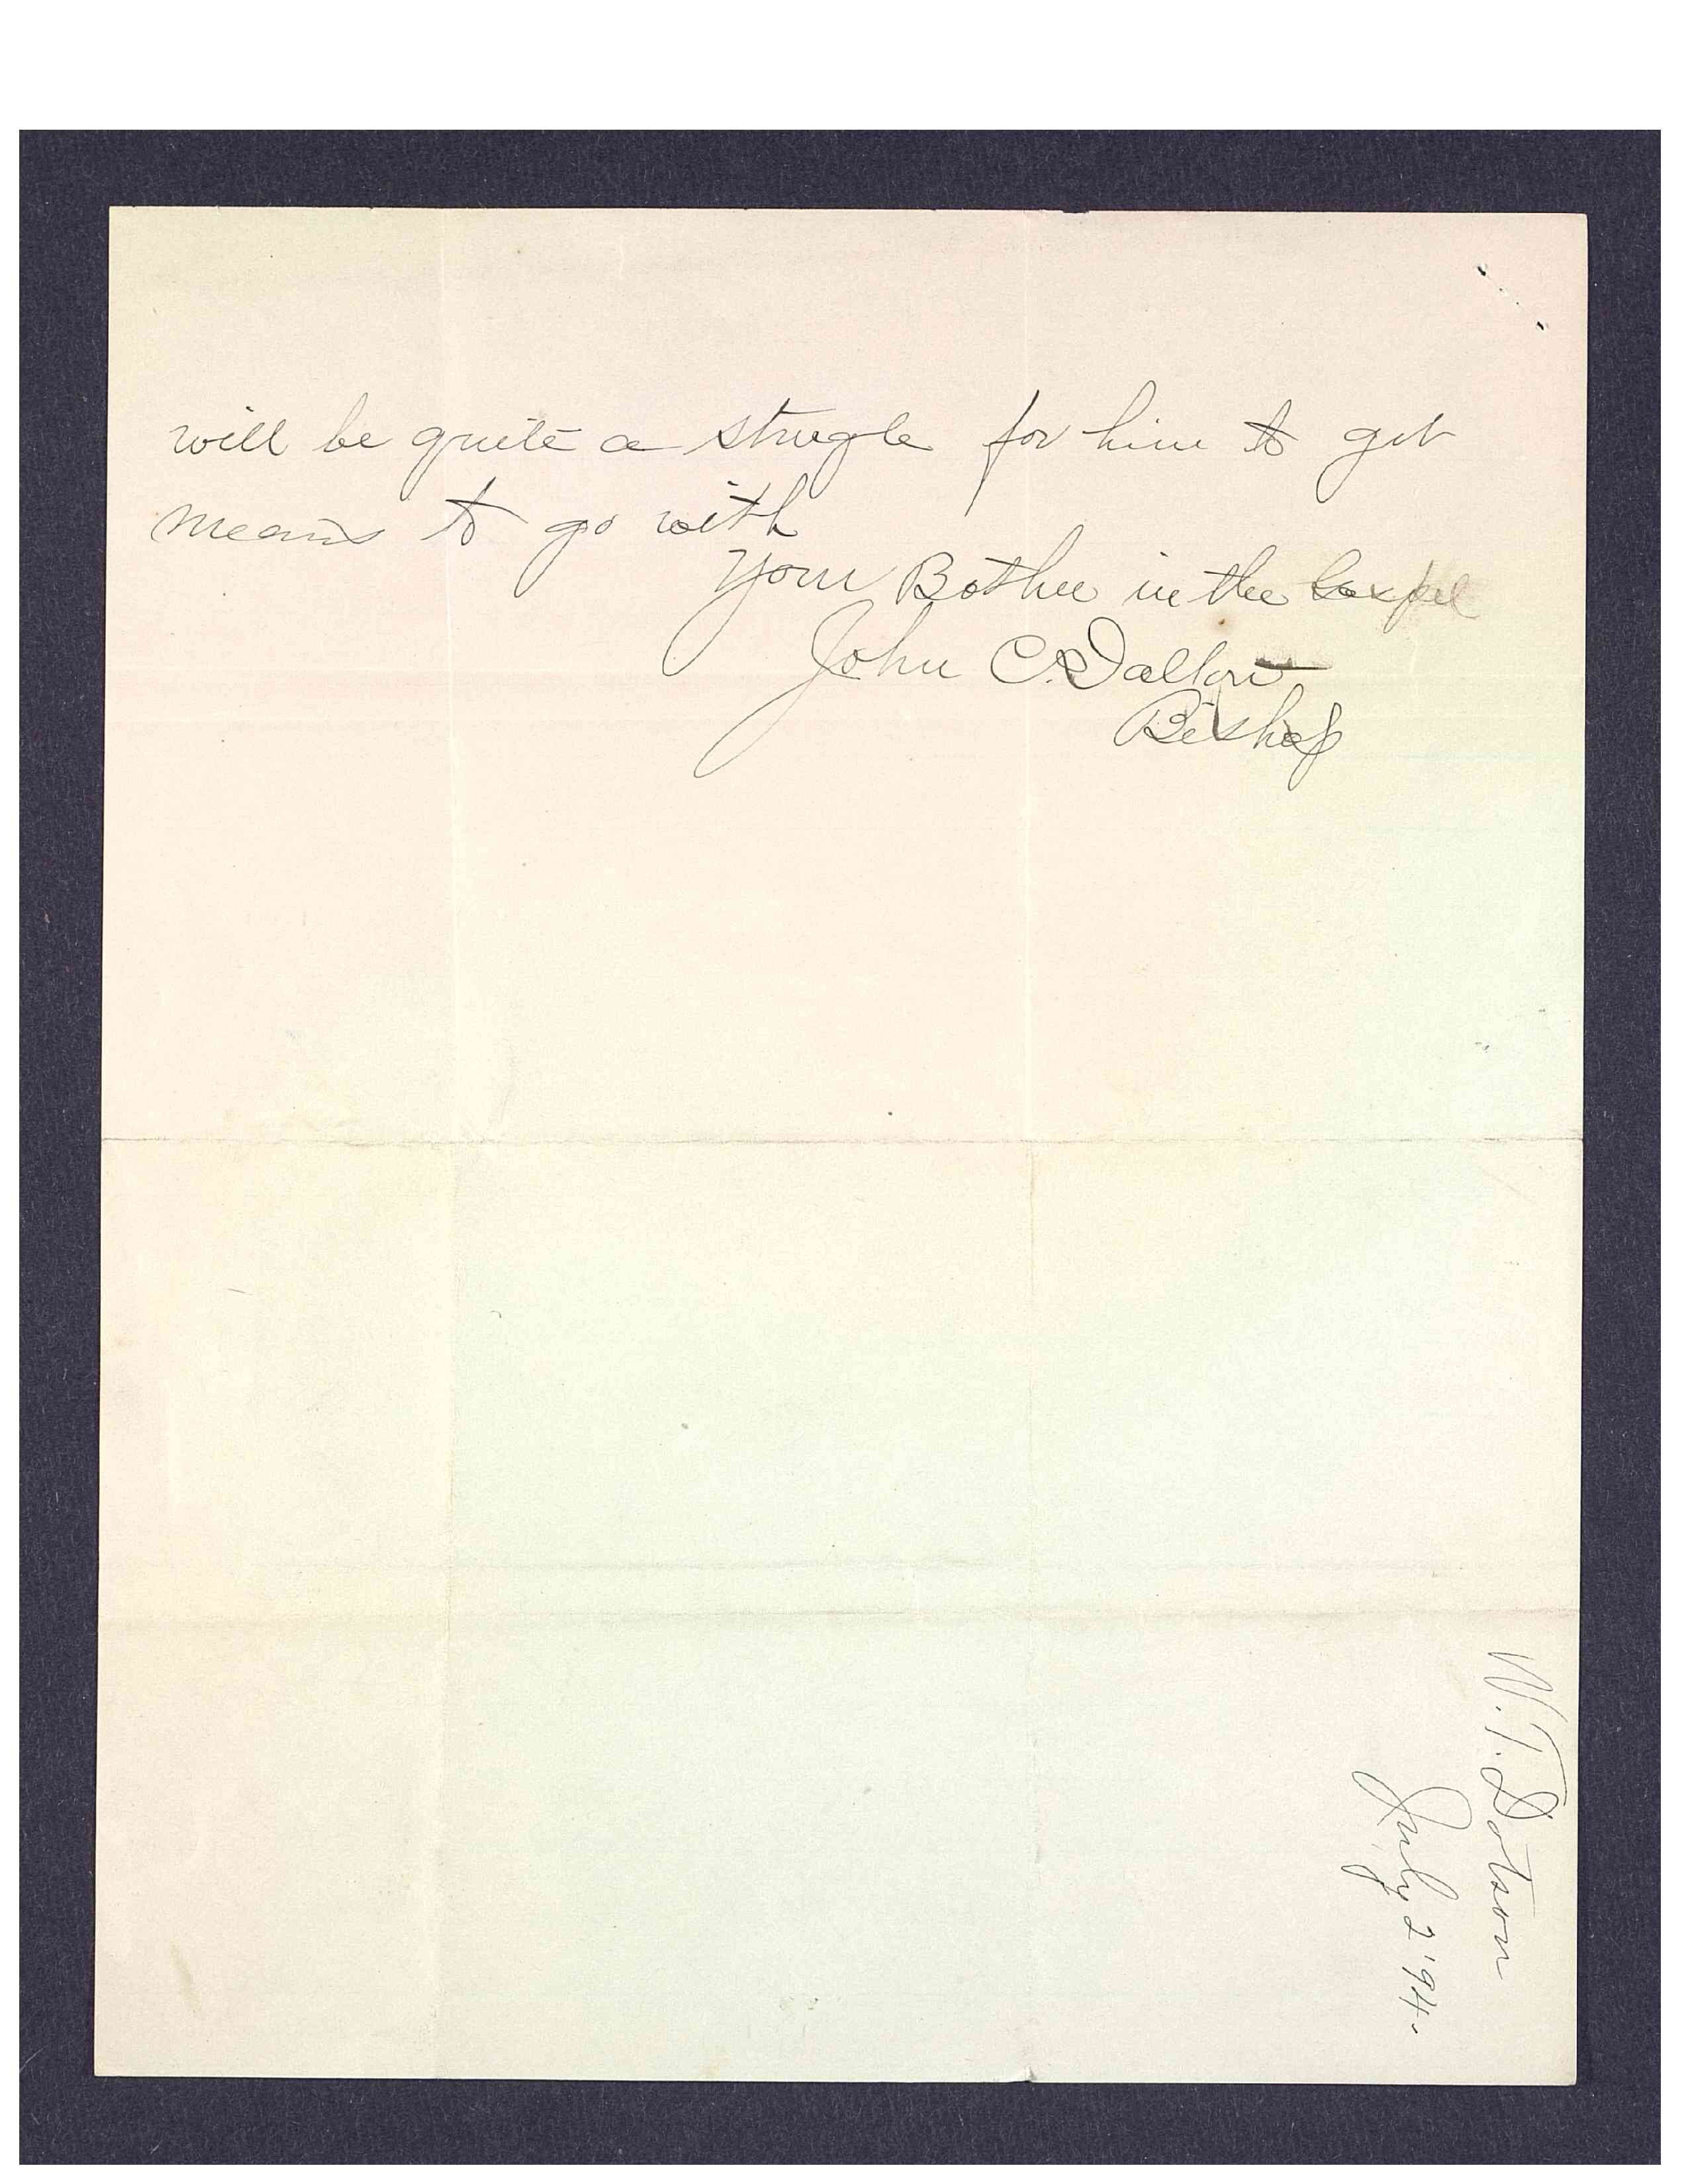 will be quite a strugle for him to get
means to go with
Your Bother in the Gospel
John C. Dalton
Bishop
W. T. Dotson
July 2 '94.